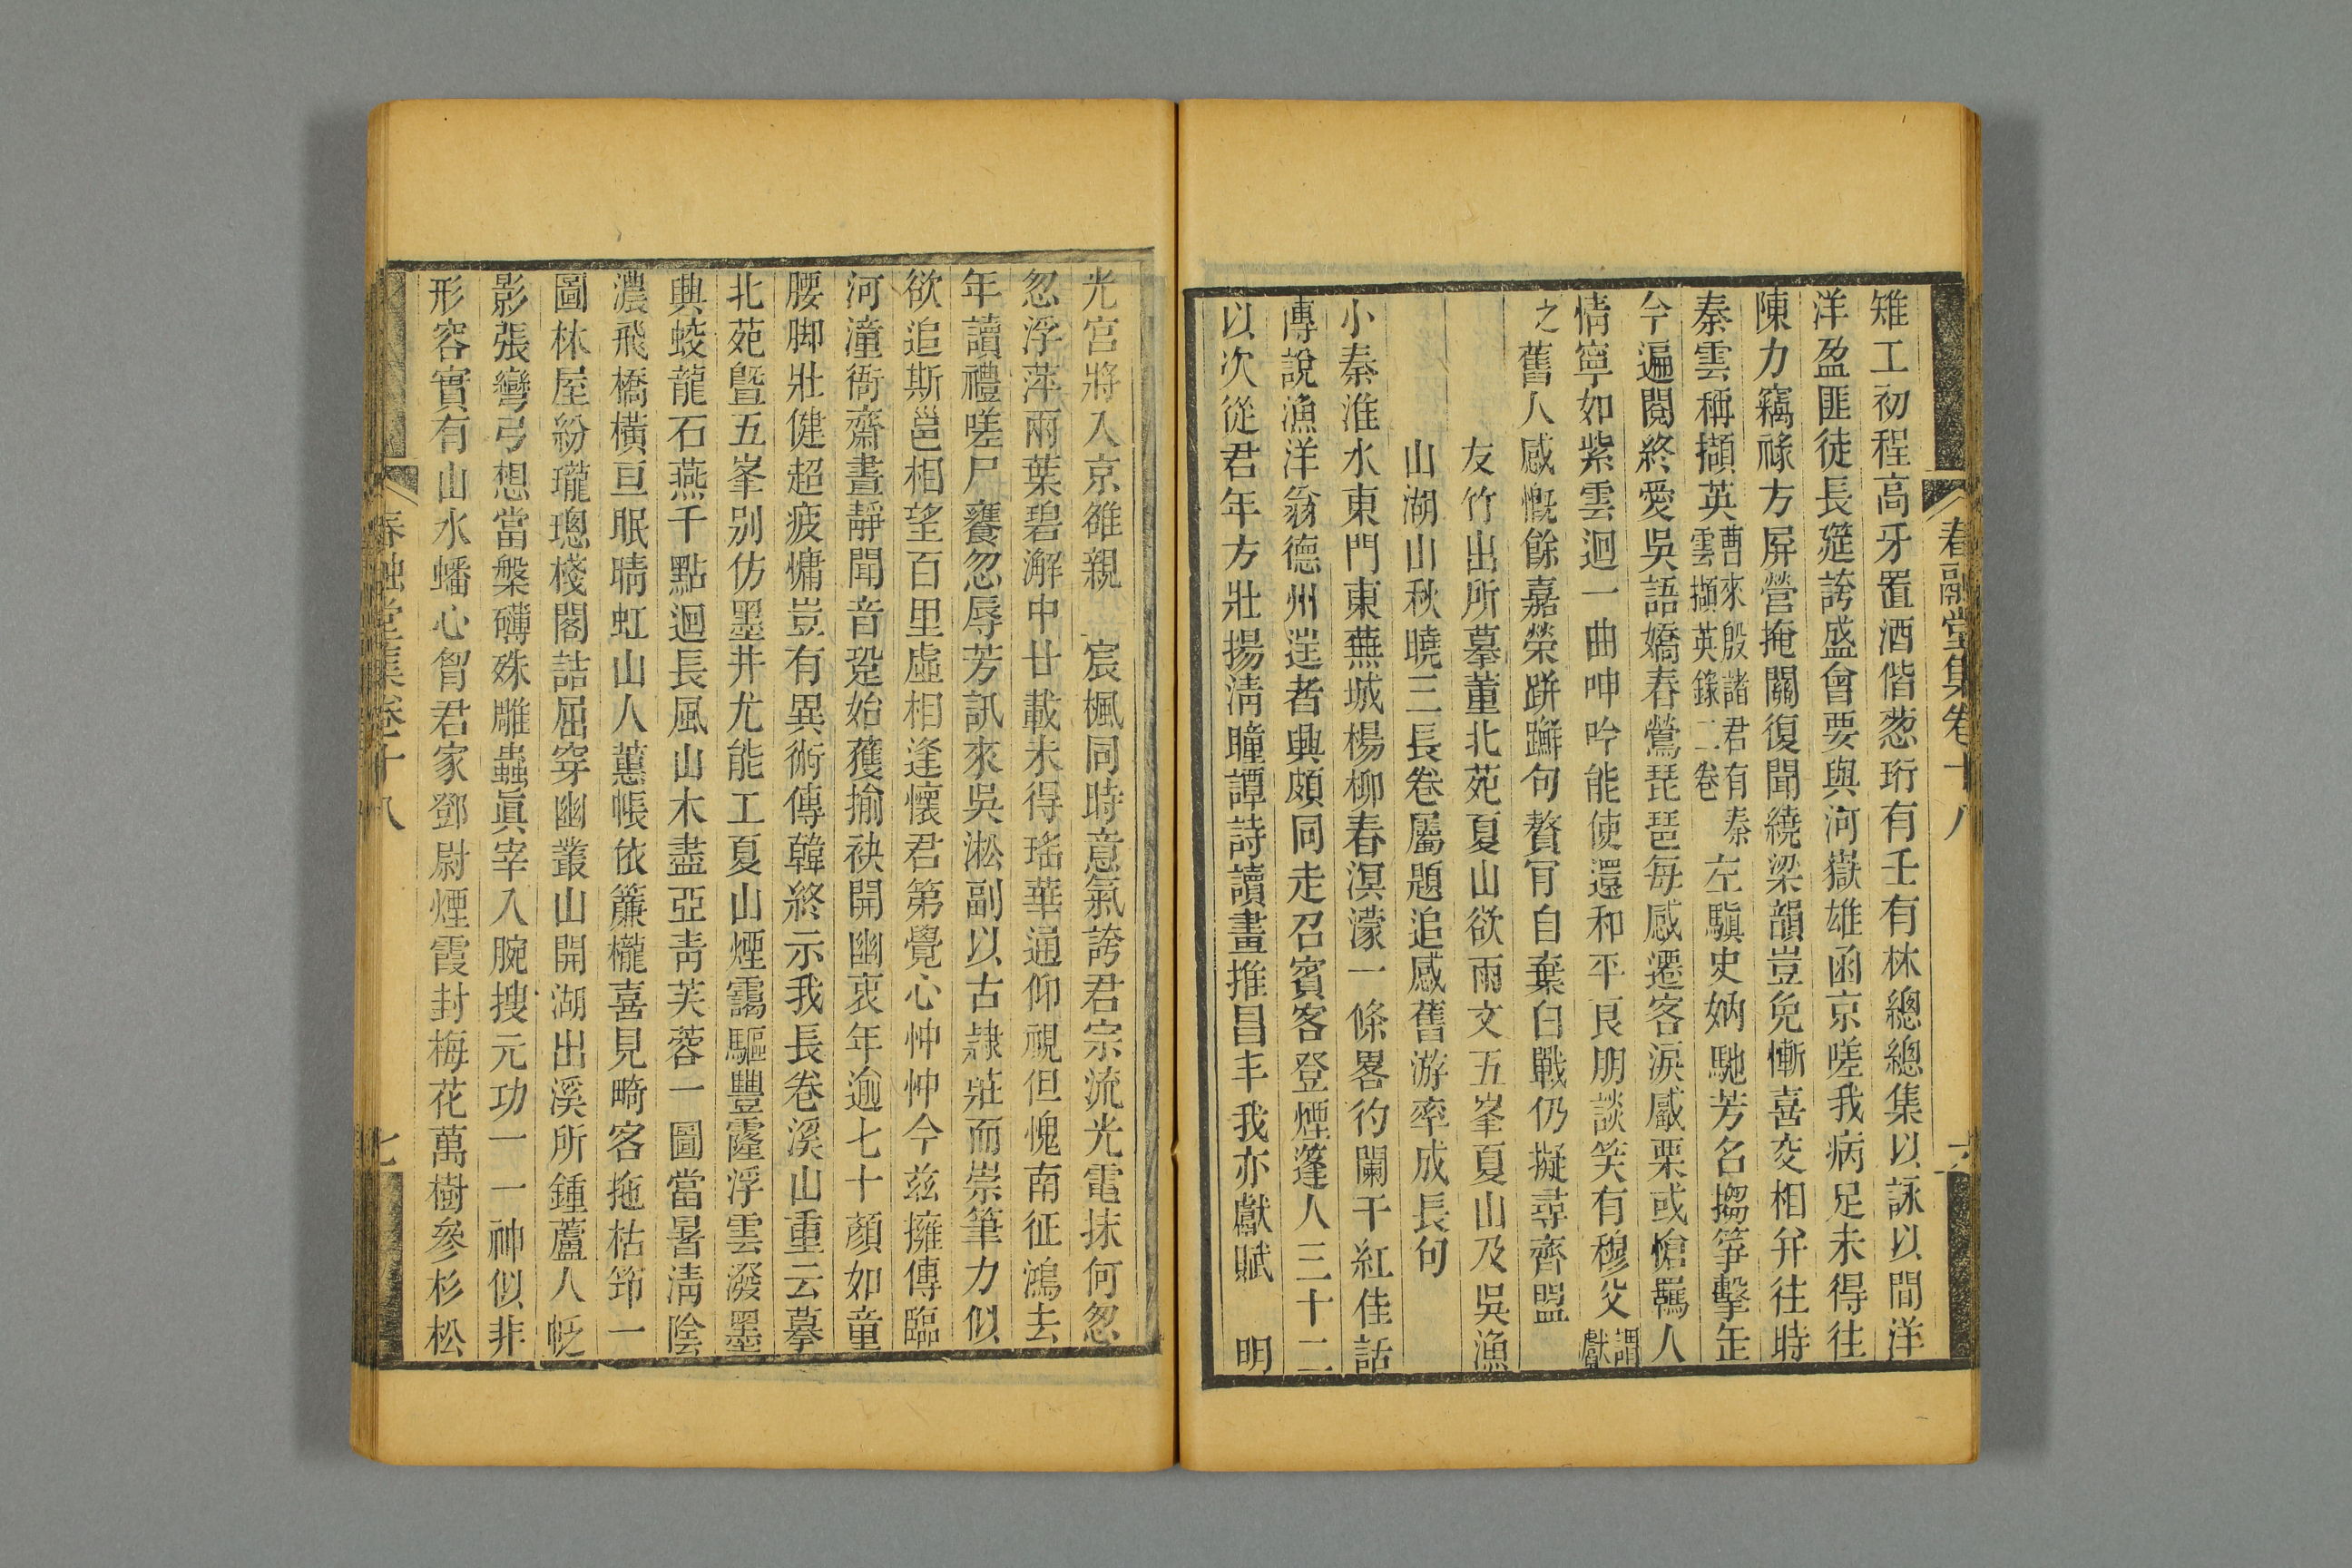 春融堂集卷十八
六
雉工初程高牙置酒偕葱珩有壬有林總總集以詠以間洋
洋盈匪徒長筵誇盛會要與河嶽雄函京嗟我病足未得往
陳力竊祿方屏營掩關復聞繞梁韻豈免慚喜交相并往時
秦雲稱擷英曹來殷諸君有秦雲擷英錄二卷左驂史妠馳芳名搊箏擊缶
今遍閱終愛吳語嬌春鶯琵琶每感遷客淚觱栗或愴羈人
情寧如紫雲迴一曲呻吟能使還和平良朋談笑有穆父謂獻
之舊人感慨餘嘉榮跰𨇤句贅肎自棄白戰仍擬尋齊盟
友竹出所摹董北苑夏山欲雨文五峯夏山及吳漁
山湖山秋曉三長卷屬題追感舊游率成長句
小秦淮水東門東蕪城楊柳春溟濛一條畧彴闌干紅佳話
傳說漁洋翁德州逞者興頗同走召賓客登煙蓬人三十二
以次從君年方壯揚淸瞳譚詩讀畫推昌丰我亦獻賦 明
光宮將入京雒親 宸楓同時意氣誇君宗流光電抹何忽
忽浮萍兩葉碧澥中廿載未得瑤華通仰視但愧南征鴻去
年讀禮嗟尸饔忽辱芳訊來吳淞副以古隷莊而崇筆力似
欲追斯邕相望百里虛相逢懷君第覺心忡忡今兹擁傳臨
河潼衙齋晝靜聞音跫始獲揄袂開幽衷年逾七十顏如童
腰脚壯健超疲慵豈有異術傳韓終示我長卷溪山重云摹
北苑曁五峯別仿墨井尤能工夏山煙靄驅豐霳浮雲潑墨
興蛟龍石燕千點迴長風山木盡亞靑芙蓉一圖當暑淸陰
濃飛橋橫亘眠晴虹山人蕙帳依簾櫳喜見畸客拖枯笻一
圖林屋紛瓏璁棧閣詰屈穿幽叢山開湖出溪所鍾蘆人帆
影張彎弓想當槃礴殊雕蟲眞宰入腕搜元功一一神似非
形容實有山水蟠心胷君家鄧尉煙霞封梅花萬樹參杉松
春融堂集卷十八
七